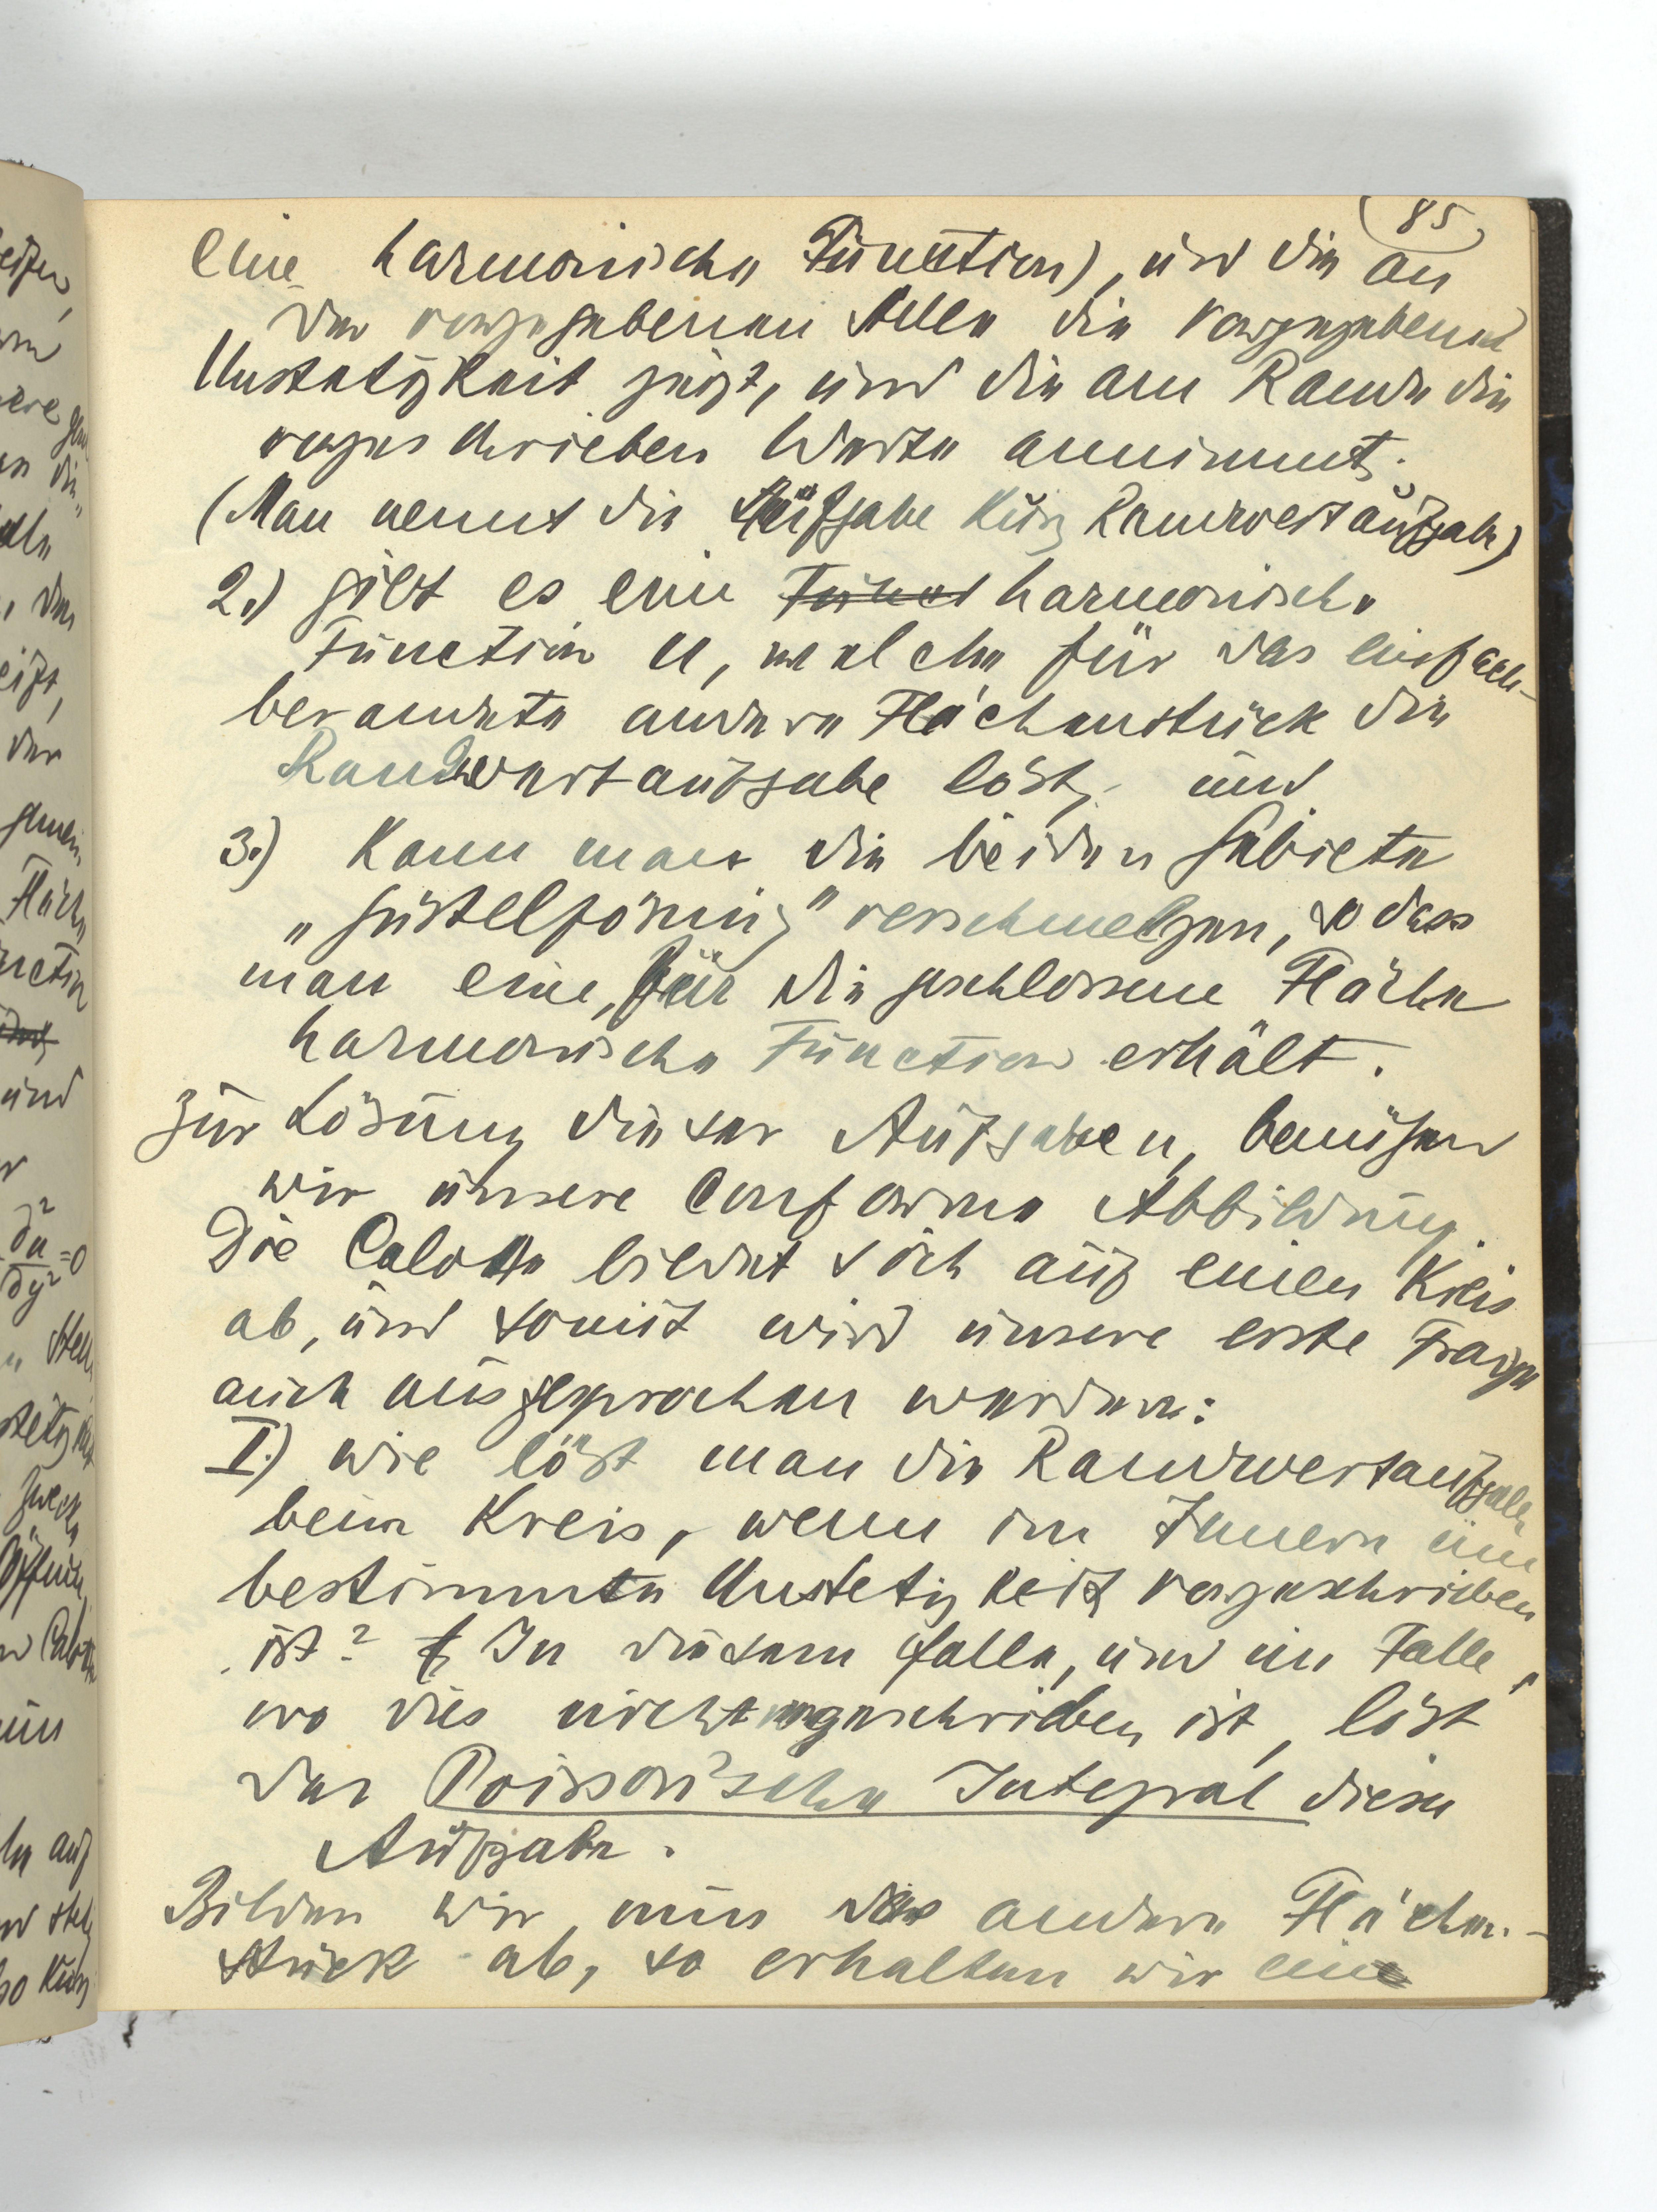 85
eine harmonische Function), und die an
der vorgegebenen Stelle die vorgegebene
Unstetigkeit zeigt, und die am Rande die
vorgeschrieben Werte annimmt.
(Man nennt die Aufgabe kurz Randwertaufgabe)
2.) gibt es eine Funct harmonische
Function u, welche für das einfach-
berandete andere Flächenstück die
Randwertaufgabe löst, und
3.) Kann man die beiden Gebiete
„gürtelförmig" verschmelzen, so dass
man eine, für die geschlossene Fläche
harmonische Function erhält.
Zur Lösung dieser Aufgaben, benützen
wir unsere conforme Abbildung.
Die Calotte bildet sich auf einen Kreis
ab, und somit wird unsere erste Frage
auch ausgesprochen werden:
I.) wie löst man die Randwertaufgabe
beim Kreis, wenn im Innern eine
bestimmte Unstetigkeit vorgeschrieben
ist? In diesem falle, und im Falle,
wo dies nicht vorgeschrieben ist, löst
das Poisson'sche Integral diese
Aufgabe.
Bilden wir nun das andere Flächen-
stück ab, so erhalten wir eine